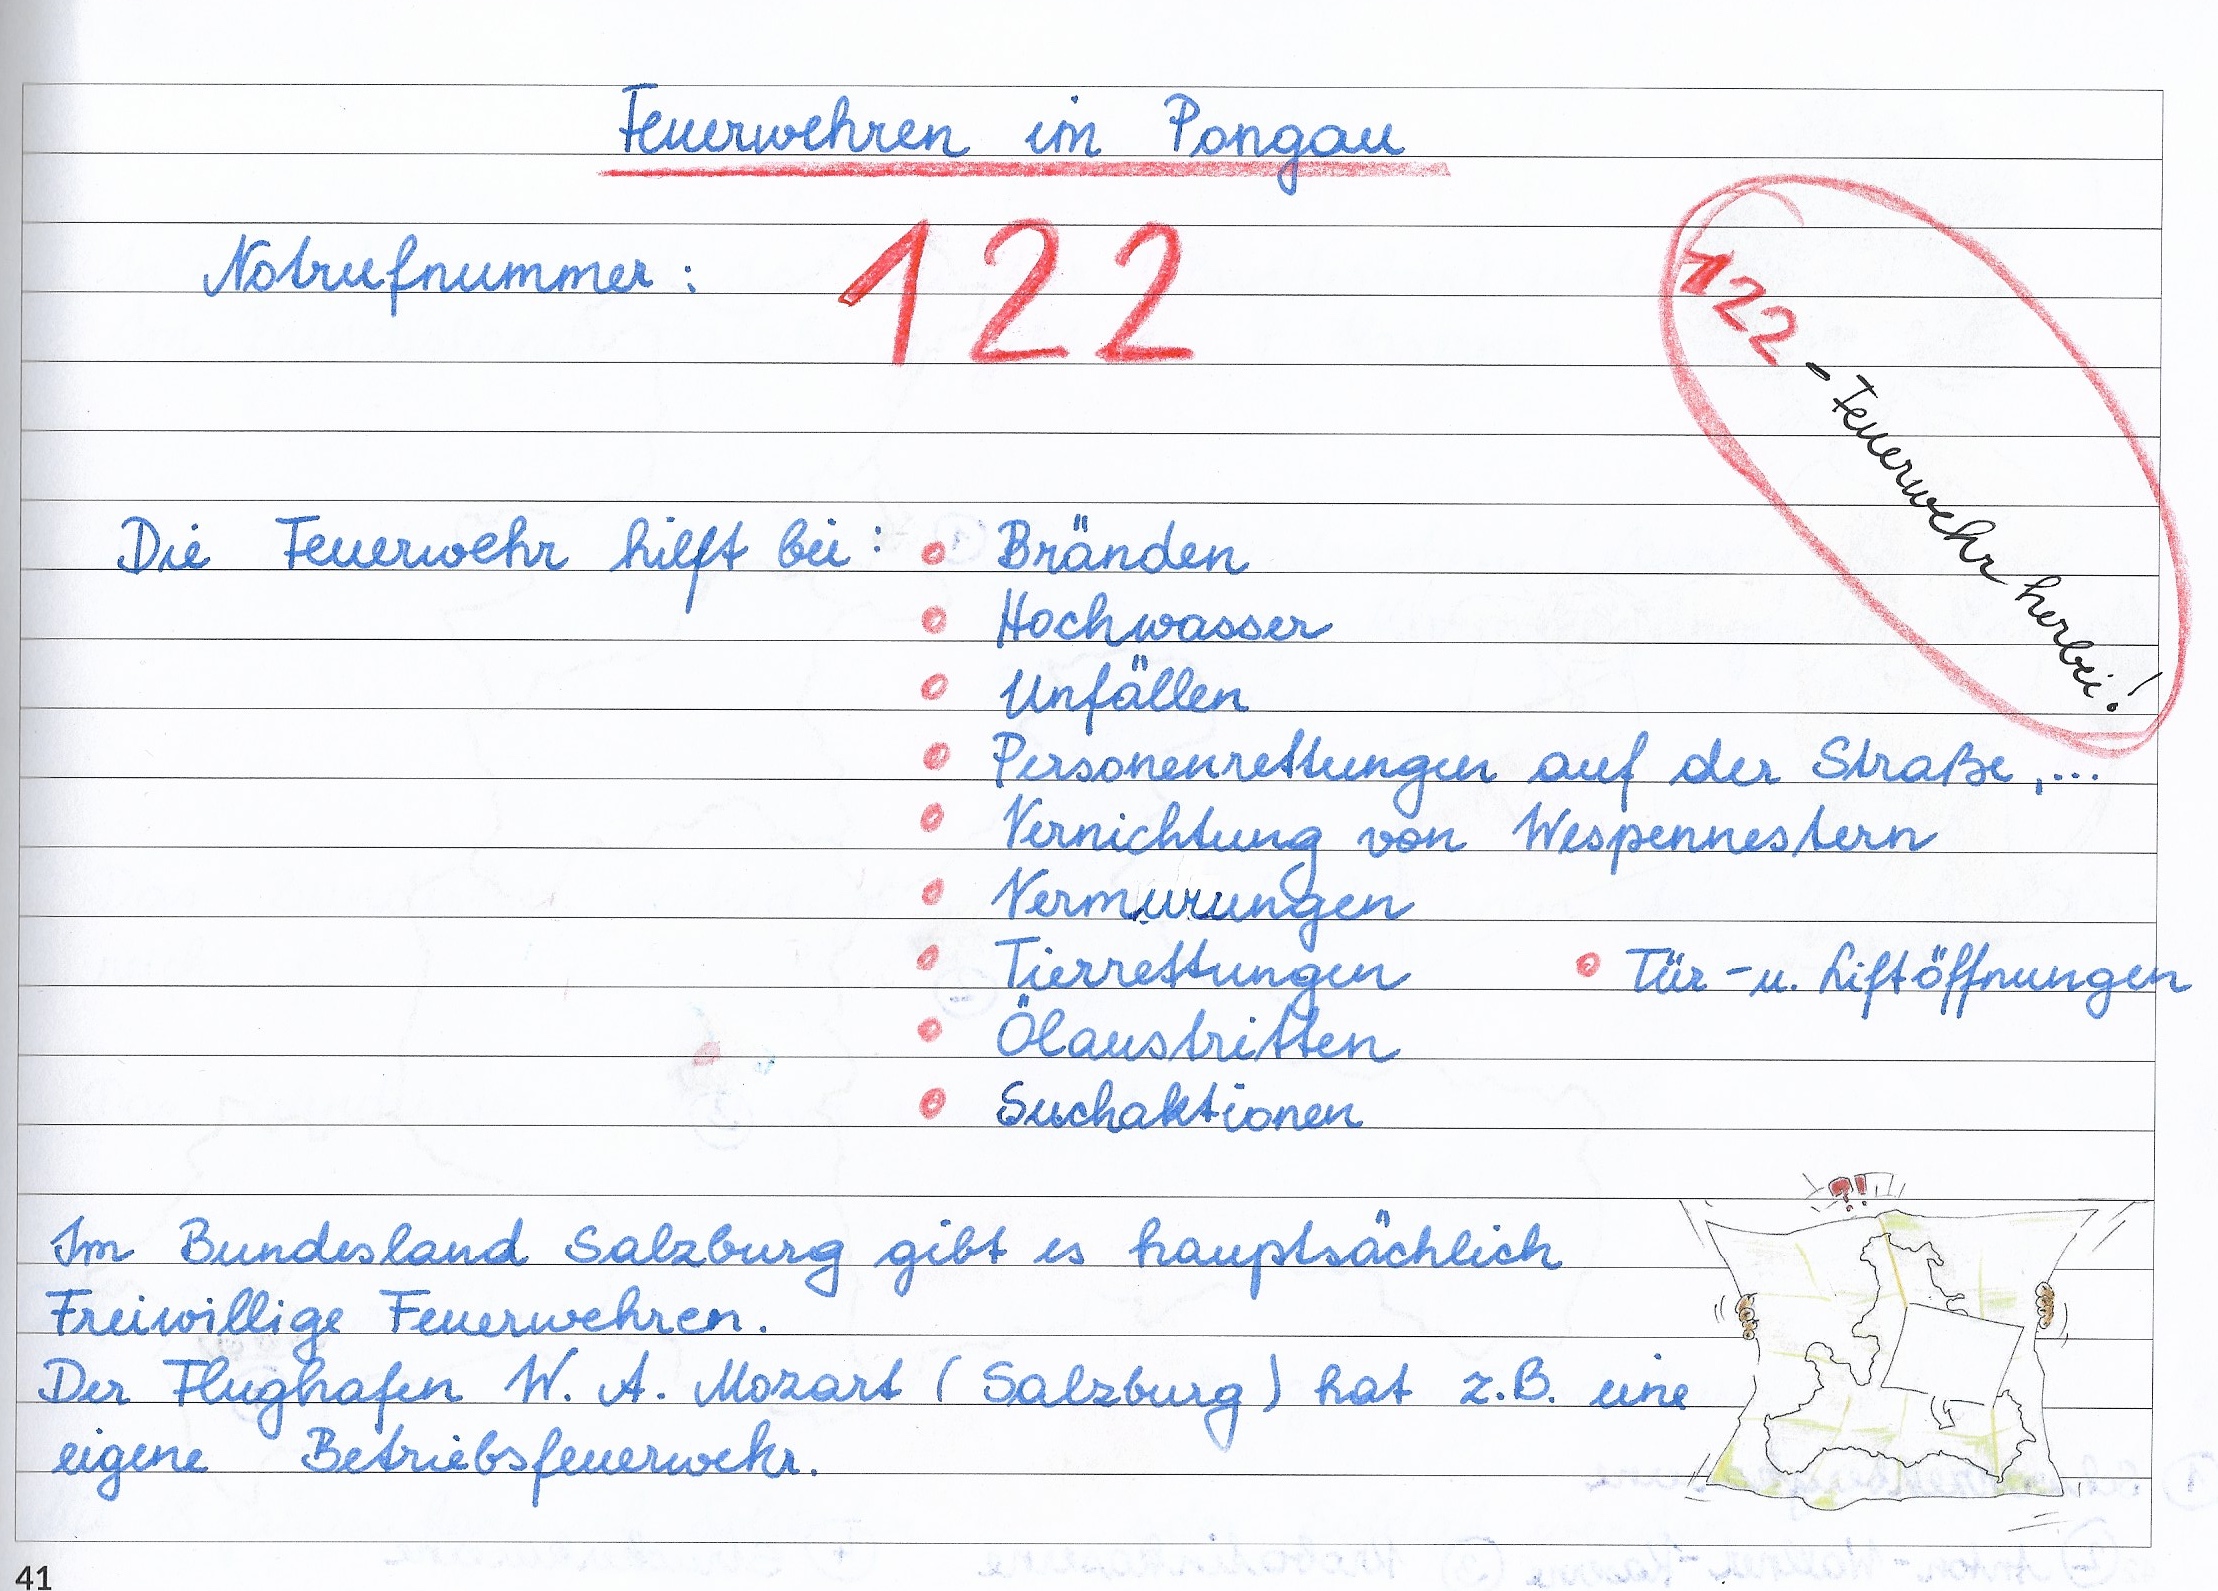 Feuerwehren im Pongau
Notrufnummer: 122
122 - Feuerwehr herbei!
Die Feuerwehr hilft bei:
• Bränden
• Hochwasser
• Unfällen
• Personenrettungen auf der Straße,...
• Vernichtung von Wespennestern
• Vermurungen
• Tierrettungen • Tür- u. Liftöffnungen
• Ölaustritten
• Suchaktionen
?!
Im Bundesland Salzburg gibt es hauptsächlich
Freiwillige Feuerwehren.
Der Flughafen W. A. Mozart (Salzburg) hat z.B. eine
eigene Betriebsfeuerwehr.
41